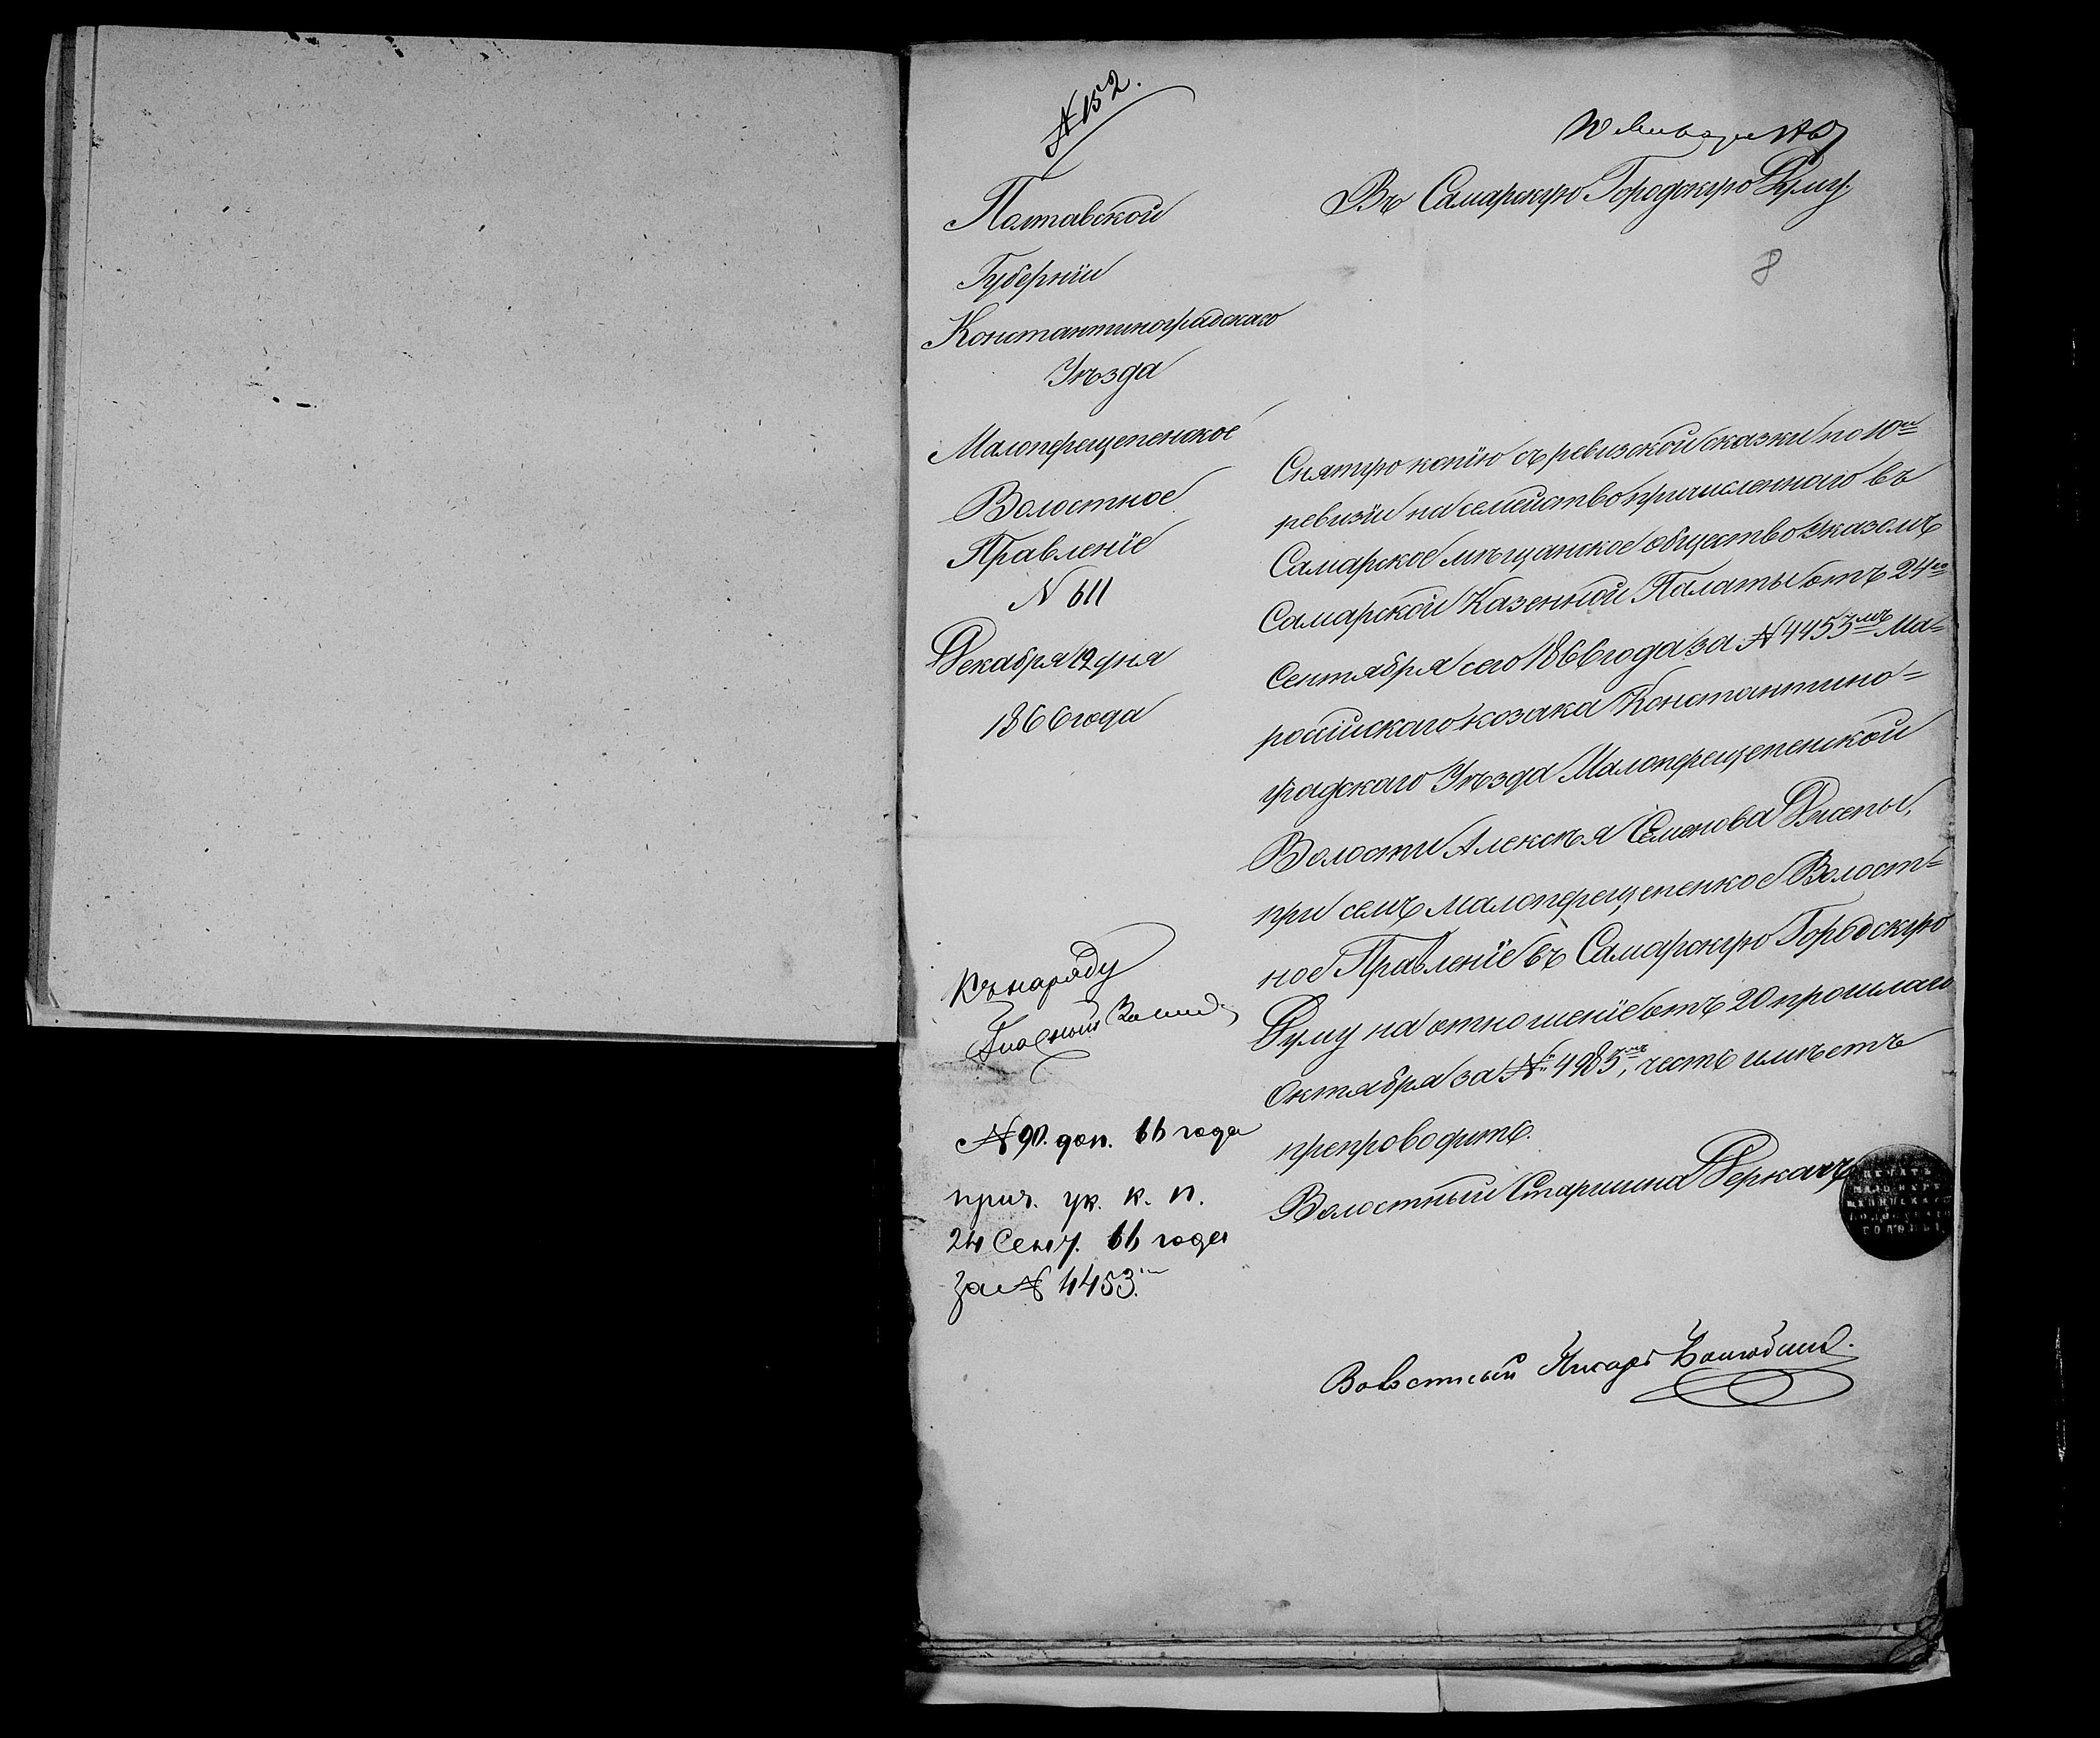 № 152.
Января 1867
Въ Самарскую Городскую Думу.
8
Полтавской
Губерніи
Константиноградскаго
Уѣзда
Малоперещепенское
Волостное
Правленіе
№ 611
Декабря 12 дня
1866 года
Снятую копію съ ревизской сказки по 10ой
ревизіи на семейство причисленнаго въ
Самарское мѣщанское общество Указомъ
Самарской Казенной Палаты отъ 24го
Сентября сего 1866 года за № 4453мъ Ма=
російскаго козака Константино=
градскаго Уѣзда Малоперещепенской
Волости Алексѣя Семенова
при семъ Малоперещепенкое Волост=
ное Правленіе въ Самарскую Городскую
Думу на отношеніе отъ 20 прошлаго
Октября за № 4985мъ, честь имѣетъ
препроводить.
Волостный Старшина Деркачъ
ПЕЧАТЬ
МАЛОПЕРЕ
ЩЕПИНСКАГО
ВОЛОСТНАГО
ГОЛОВЫ
Волостный Писарь
Къ наряду
Гласный
№ 90. доп. 66 года
прич. ук. к. п.
24 Сент. 66 года
за № 4453.